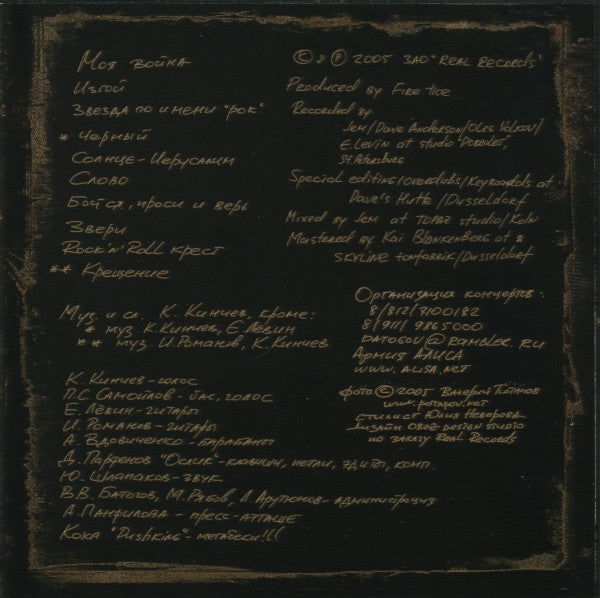 Моя война
Изгой
Звезда по имени "рок"
* Чёрный
Солнце-Иерусалим
Слово
Бойся, проси и верь
Звери
Rock'n'Roll крест
** Крещение
Муз. и сл. К. Кинчев, кроме:
* муз. К. Кинчев, Е. Лёвин
** муз. И. Романов, К. Кинчев
К. Кинчев - голос
П.С Самойлов - бас, голос
Е. Лёвин - гитары
И. Романов - гитары
А. Вдовиченко - барабаны
Д. Парфенов "Ослик" - клавиши, петли, эдиты, комп.
Ю. Шлапаков - звук
В.В. Батогов, М. Рябов, Л. Арутюнов - администрация
А. Панфилова - пресс-атташе
Коха "Pushking" - мегабески!!!
© & ℗ 2005 ЗАО "Real Records"
Produced by Fire & Ice
Recorded by
Jem/Dave Anderson/Oleg Volkov/
E. Levin at studio "Dobrolet",
St Petersburg
Special editing/overdubs/keyboards at
Dave's Hutte/Dusseldorf
Mixed by Jem at TOPAZ studio/Koln
Mastered by Kai Blankenberg at
SKYLINE tonfabrik/Dusseldorf
Организация концертов:
8/812/3100182
8/911/9865000
batogov@rambler.ru
Армия Алиса
www.alisa.net
фото © 2005 Валерий Потапов
www.potapov.net
стилист Юлия Неверова
дизайн OBOZ design studio
по заказу Real Records